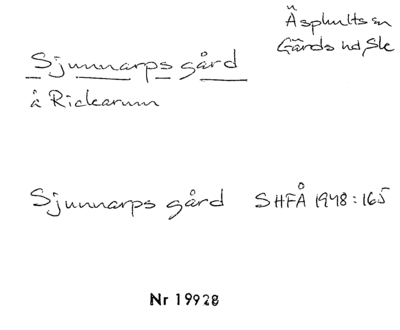 Äsphults sn
Gärds hd, Sk
Sjunnarps gård
å Rickarum
Sjunnarps gård SHFÅ 1948:165
Nr 19928